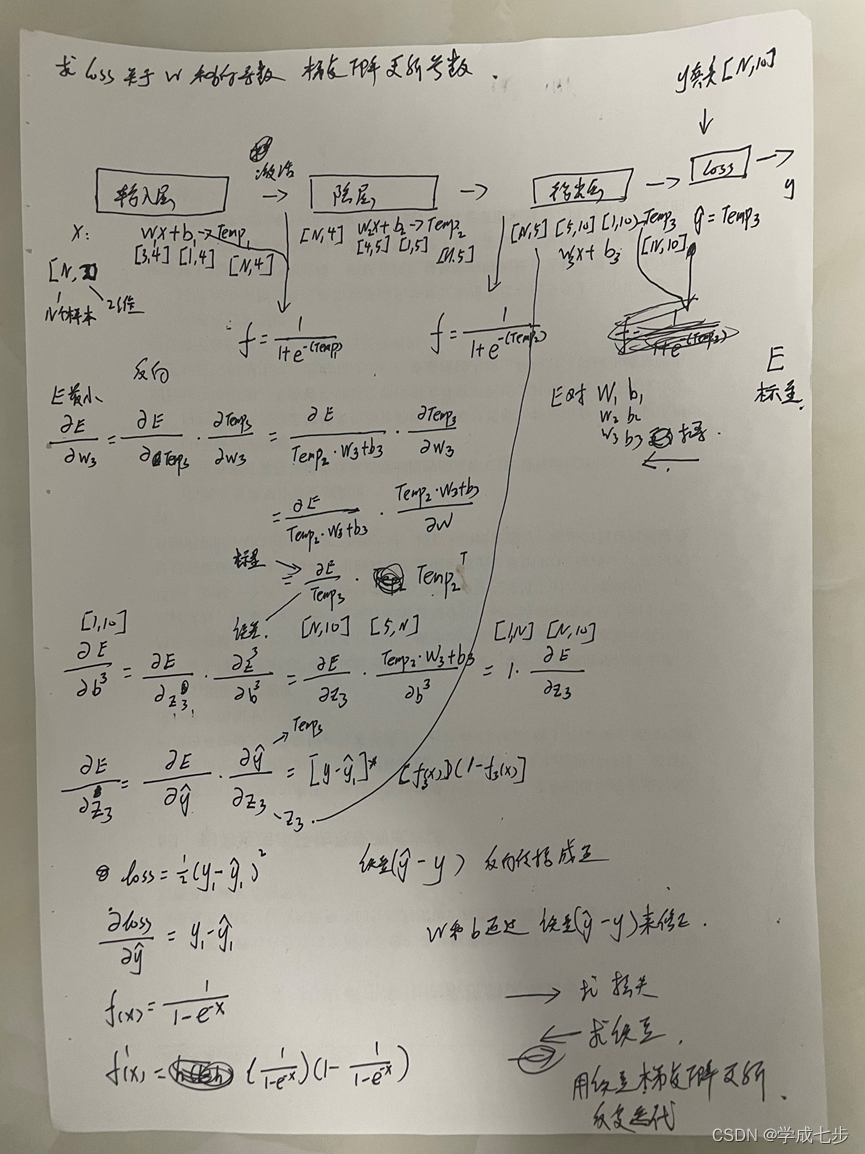 求 loss 关于 W 和b的导数 梯度下降更新参数.
y真实[N,10]
激活
输入层 → 隐层 → 输出层 → loss → y
X: W₁x+b₁→Temp₁ [N,4] W₂x+b₂→Temp₂ [N,5] [5,10] [1,10] Temp₃ ŷ=Temp₃
[3,4] [1,4] [N,4] [4,5] [1,5] [N,5] W₃x+b₃ [N,10]
[N,
N个样本
f = 1/(1+e^-(Temp)) f = 1/(1+e^-(Temp₂))
1+e^-(Temp₃)
反向
E最小
E
标量.
E对 W₁ b₁
W₂ b₂
W₃ b₃ 求导.
←
∂E/∂W₃ = ∂E/∂Temp₃ · ∂Temp₃/∂W₃ = ∂E/Temp₂·W₃+b₃ · ∂Temp₃/∂W₃
= ∂E/Temp₂·W₃+b₃ · Temp₂·W₃+b₃/∂W
标量 → = ∂E/Temp₃ · Temp₂ᵀ
[1,10] [N,10] [5,N] [1,N] [N,10]
∂E/∂b³ = ∂E/∂z₃ · ∂z³/∂b³ = ∂E/∂z₃ · Temp₂·W₃+b₃/∂b³ = 1· ∂E/∂z₃
→Temp₃
∂E/∂z₃ = ∂E/∂ŷ · ∂ŷ/∂z₃ = [y-ŷ₁]* [f₃(x)](1-f₃(x)]
z₃.
loss = ½(y₁-ŷ₁)²
(ŷ-y) 反向传播
∂loss/∂ŷ = y₁-ŷ₁
W和b通过 (ŷ-y)来修正.
f(x) = 1/(1-e^-x)
→ 求损失
f'(x) = (1/(1-e^-x))(1- 1/(1-e^-x))
← 求
用 梯度下降更新.
反复迭代
CSDN @学成七步